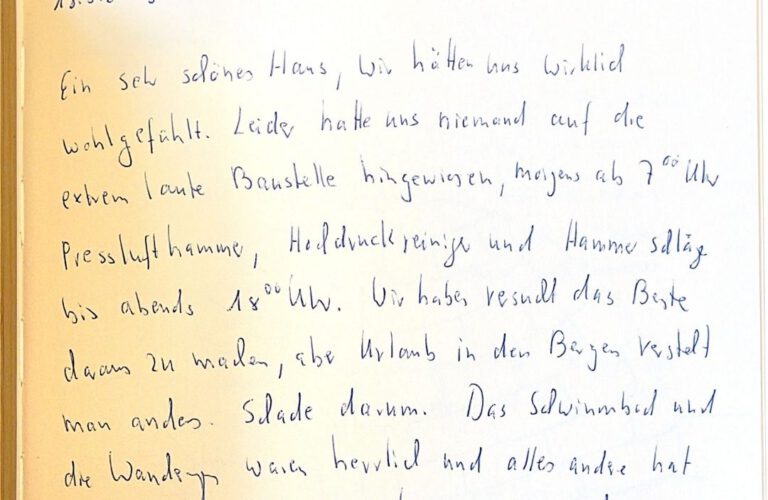 Ein sehr schönes Haus, wir hätten uns wirklich
wohlgefühlt. Leider hatte uns niemand auf die
extrem laute Baustelle hingewiesen, morgens ab 7⁰⁰ Uhr
Presslufthammer, Hochdruckreiniger und Hammerschläge
bis abends 18⁰⁰ Uhr. Wir haben versucht das Beste
daraus zu machen, aber Urlaub in den Bergen versteht
man anders. Schade darum. Das Schwimmbad und
die Wanderungen waren herrlich und alles andere hat